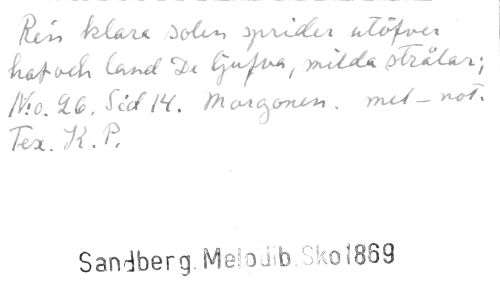 Re'n klara solen sprider utöfver
haf och land De ljufva, milda strålar;
N:o. 26. Sid 14. Morgonen. mel-not.
Tex. K. P.
Sandberg. Melodib. Sko1869